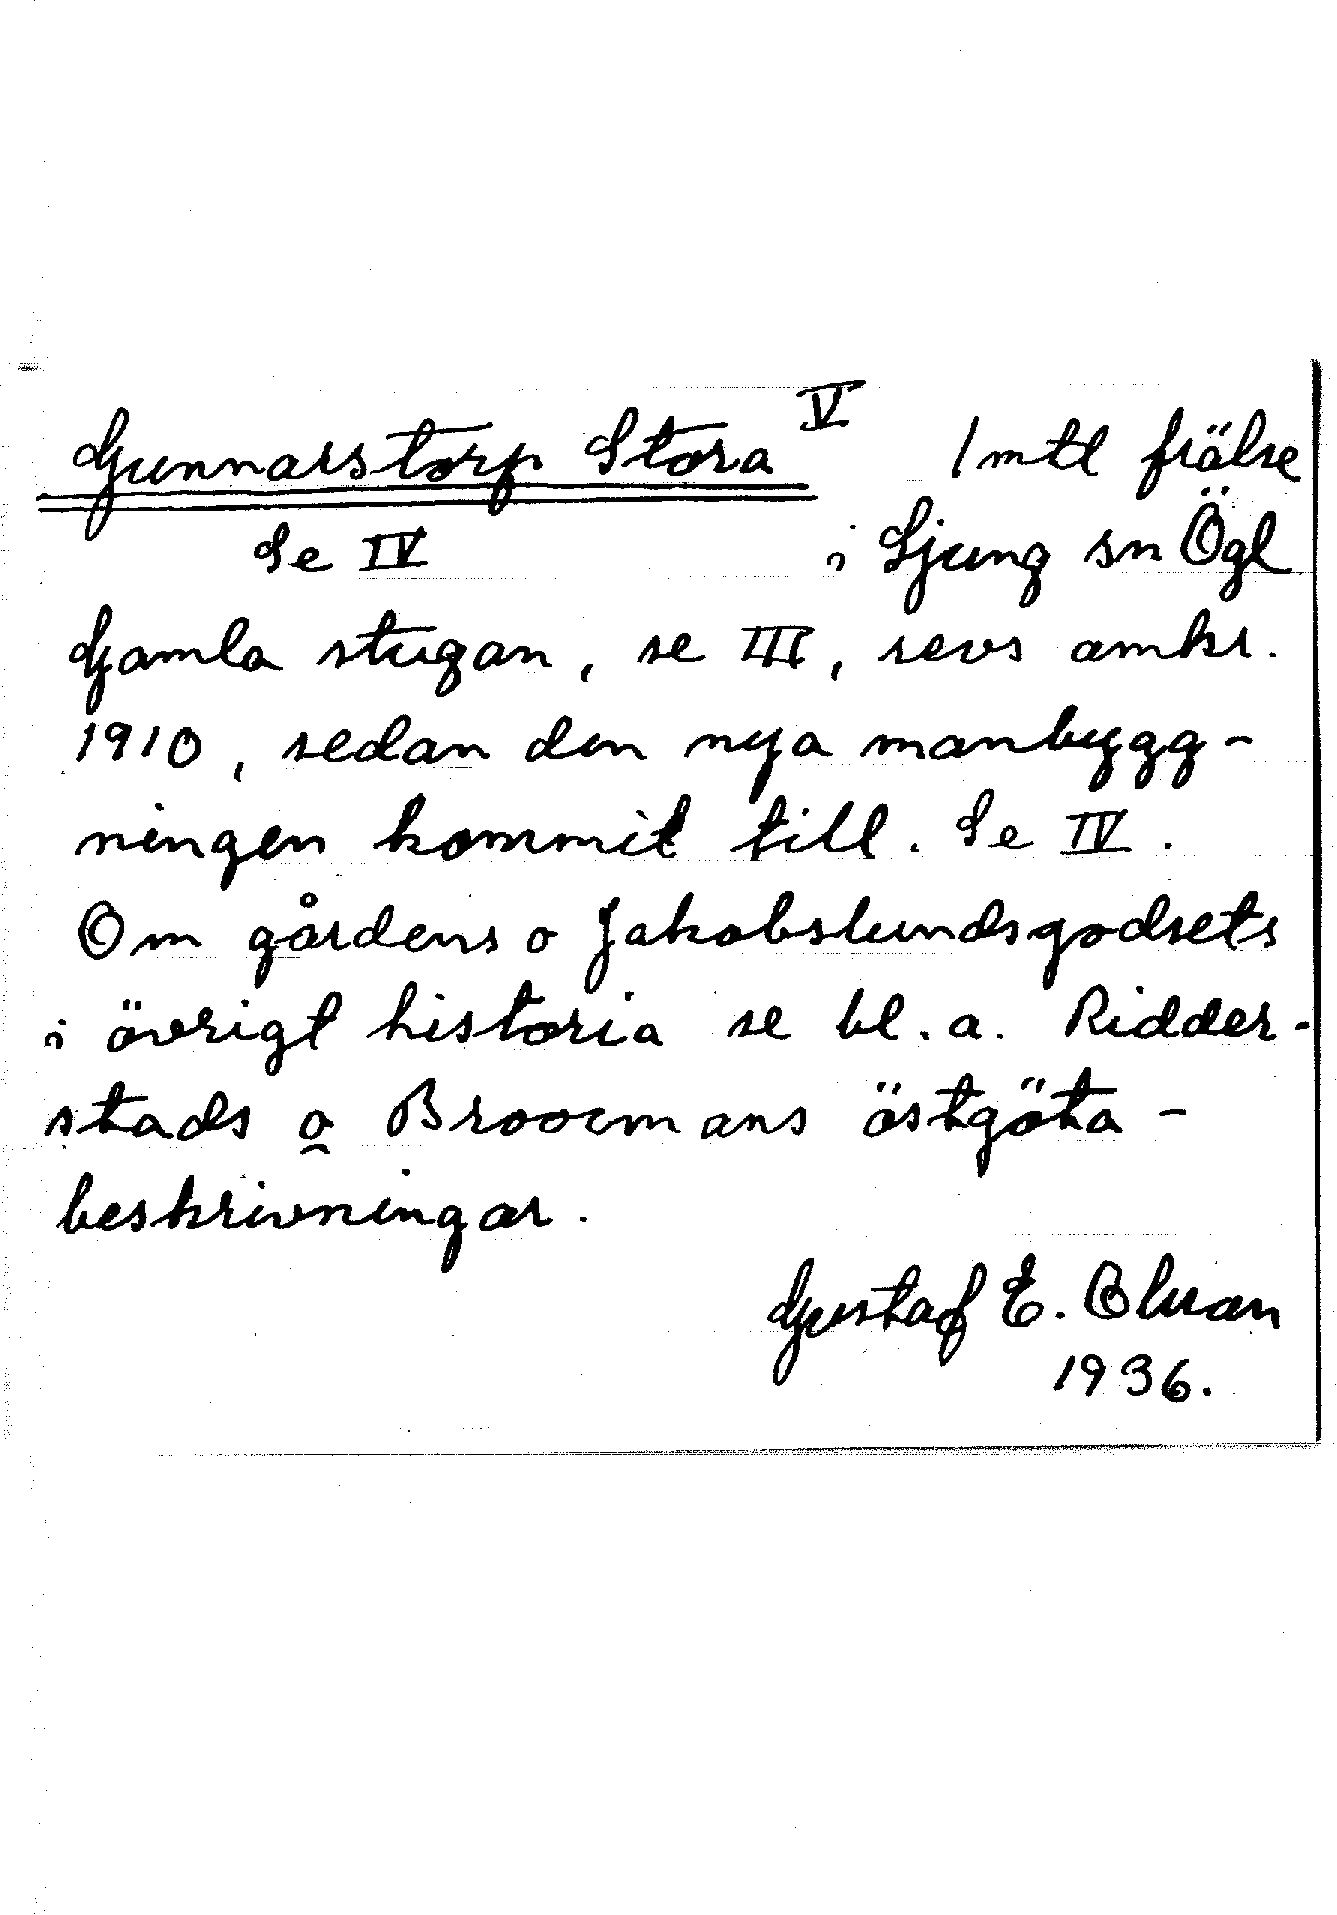 Gunnarstorp Stora V 1 mtl frälse
Se IV i Ljung sn Ögl
Gamla stugan, se III, revs omkr.
1910, sedan den nya manbygg-
ningen kommit till. Se IV.
Om gårdens o Jakobslundsgodsets
i övrigt historia se bl. a. Ridder-
stads o Broocmans östgöta-
beskrivningar.
Gustaf E.
1936.